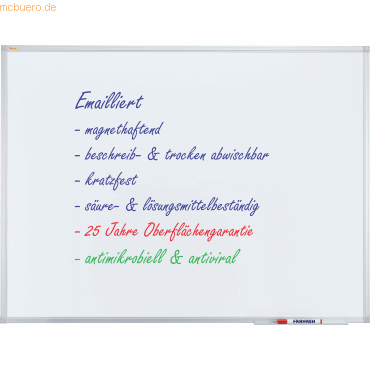 mcbuero.de
Emailliert
- magnethaftend
- beschreib- & trocken abwischbar
- kratzfest
- säure- & lösungsmittelbeständig
- 25 Jahre Oberflächengarantie
- antimikrobiell & antiviral
FRANKEN